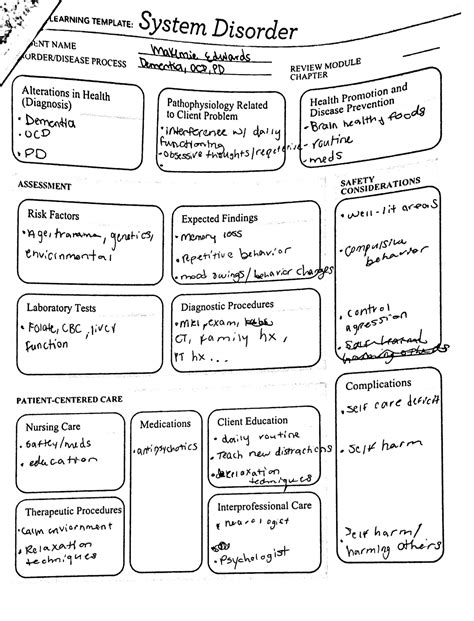 LEARNING TEMPLATE: System Disorder
ENT NAME Makimie Edwards
ORDER/DISEASE PROCESS Dementia, OCD, PD
REVIEW MODULE
CHAPTER
Alterations in Health
(Diagnosis)
• Dementia
• OCD
• PD
Pathophysiology Related
to Client Problem
• interference w/ daily
functioning
• Obsessive thoughts/repetetive
Health Promotion and
Disease Prevention
- Brain healthy foods
- routine
- meds
ASSESSMENT
SAFETY
CONSIDERATIONS
Risk Factors
• Age, trauma, genetics,
environmental
Expected Findings
• Memory loss
• repetitive behavior
• mood swings/behavior changes
• well-lit areas
• compulsive
behavior
• control
agression
Laboratory Tests
• Folate, CBC, liver
function
Diagnostic Procedures
• MRI, exam,
CT, family hx,
PT hx...
PATIENT-CENTERED CARE
Complications
• self care deficit
• self harm
Self harm/
harming others
Nursing Care
• Saftey/meds
• education
Medications
• antipsychotics
Client Education
• daily routine
• Teach new distractions
• relaxation
techniques
Therapeutic Procedures
• calm enviornment
• Relaxation
techniques
Interprofessional Care
• neurologist
• Psychologist